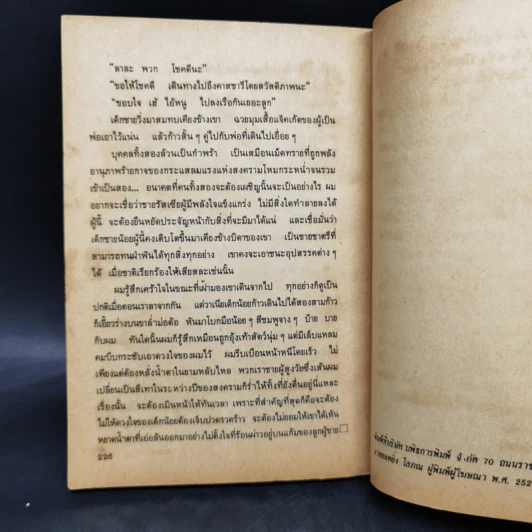 "ลาละ พวก โชคดีนะ"
"ขอให้โชคดี เดินทางไปถึงคาสชารีโดยสวัสดิภาพนะ"
"ขอบใจ เฮ้ ไอ้หนู ไปลงเรือกันเถอะลูก"
เด็กชายวิ่งมาสมทบเคียงข้างเขา ฉวยมุมเสื้อแจ็คเก้ตของผู้เป็น
พ่อเอาไว้แน่น แล้วก้าวสั้นๆ คู่ไปกับพ่อที่เดินไปเอื่อยๆ
บุคคลทั้งสองล้วนเป็นกำพร้า เป็นเสมือนเม็ดทรายที่ถูกพลัง
อานุภาพร้ายกาจของกระแสลมแรงแห่งสงครามโหมกระหน่ำจนรวม
เข้าเป็นสอง... อนาคตที่คนทั้งสองจะต้องเผชิญนั้นจะเป็นอย่างไร ผม
อยากจะเชื่อว่าชายรัสเซียผู้มีพลังใจแข็งแกร่ง ไม่มีสิ่งใดทำลายลงได้
ผู้นี้ จะต้องยืนหยัดประจัญหน้ากับสิ่งที่จะมีมาได้แน่ และเชื่อมั่นว่า
เด็กชายน้อยผู้นี้คงเติบโตขึ้นมาเคียงข้างบิดาของเขา เป็นชายชาตรีที่
สามารถทนฝ่าฟันได้ทุกสิ่งทุกอย่าง เขาคงจะเอาชนะอุปสรรคต่างๆ
ได้ เมื่อชาติเรียกร้องให้เสียสละเช่นนั้น
ผมรู้สึกเศร้าใจในขณะที่เฝ้ามองเขาเดินจากไป ทุกอย่างก็ดูเป็น
ปกติเมื่อตอนเราลาจากกัน แต่วาเนียเด็กน้อยก้าวเดินไปได้สองสามก้าว
ก็เอี้ยวร่างบนขาล่ำม่อต้อ หันมาโบกมือน้อยๆ สีชมพูจางๆ บ๊าย บาย
กับผม ทันใดนั้นผมก็รู้สึกเหมือนถูกอุ้งเท้าสัตว์นุ่มๆ แต่มีเล็บแหลม
คมบีบกระชับเอาดวงใจของผมไว้ ผมรีบเบือนหน้าหนีโดยเร็ว ไม่
เพียงแต่ต้องหลั่งน้ำตาในยามหลับไหล พวกเราชายผู้สูงวัยซึ่งเส้นผม
เปลี่ยนเป็นสีเทาในระหว่างปีของสงครามก็ร่ำไห้ทั้งที่ยังตื่นอยู่นี่แหละ
เรื่องนั้น จะต้องเมินหน้าให้ทันเวลา เพราะที่สำคัญที่สุดก็คือจะต้อง
ไม่ให้ดวงใจของเด็กน้อยต้องเจ็บปวดรวดร้าว จะต้องไม่ยอมให้เขาได้เห็น
หยาดน้ำตาที่เอ่อล้นออกมาอย่างไม่ตั้งใจที่ร้อนผ่าวอยู่บนแก้มของลูกผู้ชาย□
226
พิมพ์ที่บริษัท บพิธการพิมพ์ จำกัด 70 ถนนราช
โสภณ ผู้พิมพ์ผู้โฆษณา พ.ศ. 252